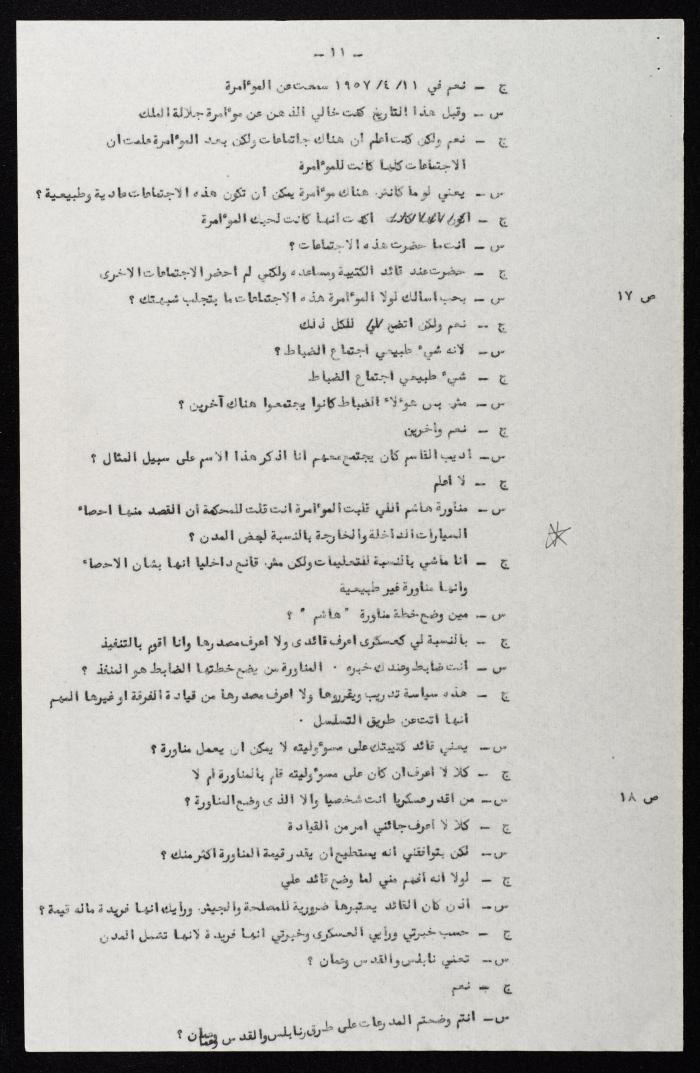 - ١١ -
ج - نعم في ١١/ ٤/ ١٩٥٧ سمعت عن الموءامرة
س - وقبل هذا التاريخ كنت خالي الذهن عن موءامرة جلالة الملك
ج - نعم ولكن كنت اعلم ان هناك جتماعات ولكن بعد الموءامرة علمت ان
الاجتماعات كلها كانت للموءامرة
س - يعني لو ما كانش هناك موءامرة يمكن ان تكون هذه الاجتماعات عادية وطبيعية ؟
ج - اكدت انها كانت لحبك الموءامرة
س - انت ما حضرت هذه الاجتماعات ؟
ج - حضرت عند قائد الكتيبة ومساعده ولكني لم احضر الاجتماعات الاخرى
س - بحب اسالك لولا الموءامرة هذه الاجتماعات ما بتجلب شبهتك ؟
ص ١٧
ج - نعم ولكن اتضح للكل ذلك
س - لانه شيء طبيعي اجتماع الضباط ؟
ج - شيء طبيعي اجتماع الضباط
س - مش بس هوءلاء الضباط كانوا يجتمعوا هناك آخرين ؟
ج - نعم واخرين
س - اديب القاسم كان يجتمع معهم انا اذكر هذا الاسم على سبيل المثال ؟
ج - لا اعلم
س - مناورة هاشم اللي قلبت الموءامرة انت قلت للمحكمة ان القصد منها احصاء
السيارات الداخلة والخارجة بالنسبة لبعض المدن ؟
ج - انا ماشي بالنسبة للتعليمات ولكن مش قانع داخليا انها بشان الاحصاء
وانها مناورة غير طبيعية
س - مين وضع خطة مناورة " هاشم " ؟
ج - بالنسبة لي كعسكرى اعرف قائدى ولا اعرف مصدرها وانا اقوم بالتنفيذ
س - انت ضابط وعندك خبره . المناورة من يضع خطتها الضابط هو المنفذ ؟
ج - هذه سياسة تدريب ويقرروها ولا اعرف مصدرها من قيادة الفرقة او غيرها المهم
انها اتت عن طريق التسلسل .
س - يعني قائد كتيبتك على مسوءوليته لا يمكن ان يعمل مناورة ؟
ج - كلا لا اعرف ان كان على مسوءوليته قام بالمناورة ام لا
س - من اقدر عسكريا انت شخصيا والا الذى وضع المناورة ؟
ص ١٨
ج - كلا لا اعرف جائني امر من القيادة
س - لكن بتوافقني انه يستطيع ان يقدر قيمة المناورة اكثر منك ؟
ج - لولا انه افهم مني لما وضع قائد علي
س - اذن كان القائد يعتبرها ضرورية للمصلحة والجيش ورايك انها فريدة ماله قيمة ؟
ج - حسب خبرتي ورايي العسكرى وخبرتي انها فريدة لانها تشمل المدن
س - تعني نابلس والقدس وعمان ؟
ج - نعم
س - انتم وضعتم المدرعات على طرق نابلس والقدس وعمان ؟